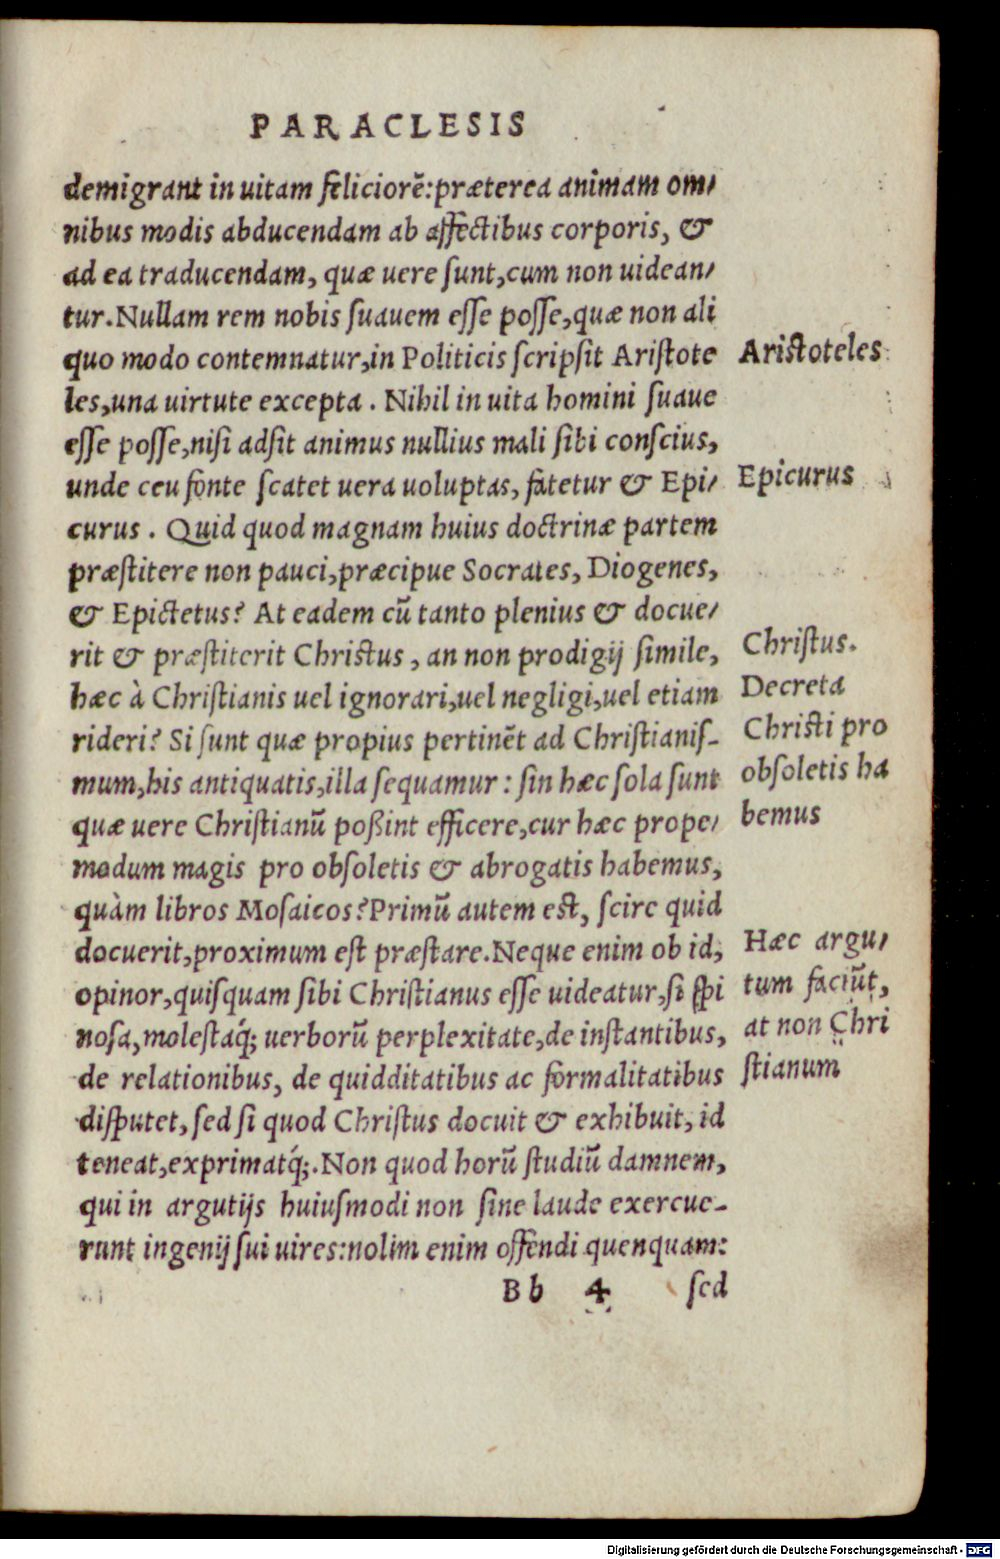 PARACLESIS
demigrant in uitam feliciorē:præterea animam om/
nibus modis abducendam ab affectibus corporis, &
ad ea traducendam, quæ uere sunt,cum non uidean/
tur.Nullam rem nobis suauem esse posse,quæ non ali
quo modo contemnatur,in Politicis scripsit Aristote
les,una uirtute excepta . Nihil in uita homini suaue
esse posse,nisi adsit animus nullius mali sibi conscius,
unde ceu fonte scatet uera uoluptas, fatetur & Epi/
curus . Quid quod magnam huius doctrinæ partem
præstitere non pauci,præcipue Socrates, Diogenes,
& Epictetus? At eadem cū tanto plenius & docue/
rit & præstiterit Christus , an non prodigij simile,
hæc à Christianis uel ignorari,uel negligi,uel etiam
rideri? Si sunt quæ propius pertinēt ad Christianis-
mum,his antiquatis,illa sequamur : sin hæc sola sunt
quæ uere Christianū poßint efficere,cur hæc prope/
modum magis pro obsoletis & abrogatis habemus,
quàm libros Mosaicos?Primū autem est, scire quid
docuerit,proximum est præstare.Neque enim ob id,
opinor,quisquam sibi Christianus esse uideatur,si spi
nosa,molestaq́; uerborū perplexitate,de instantibus,
de relationibus, de quidditatibus ac formalitatibus
disputet, sed si quod Christus docuit & exhibuit, id
teneat,exprimatq́;.Non quod horū studiū damnem,
qui in argutijs huiusmodi non sine laude exercue-
runt ingenij sui uires:nolim enim offendi quenquam:
Bb 4 sed
Aristoteles
Epicurus
Christus.
Decreta
Christi pro
obsoletis ha
bemus
Hæc argu/
tum faciūt,
at non Chri
stianum
Digitalisierung gefördert durch die Deutsche Forschungsgemeinschaft - DFG